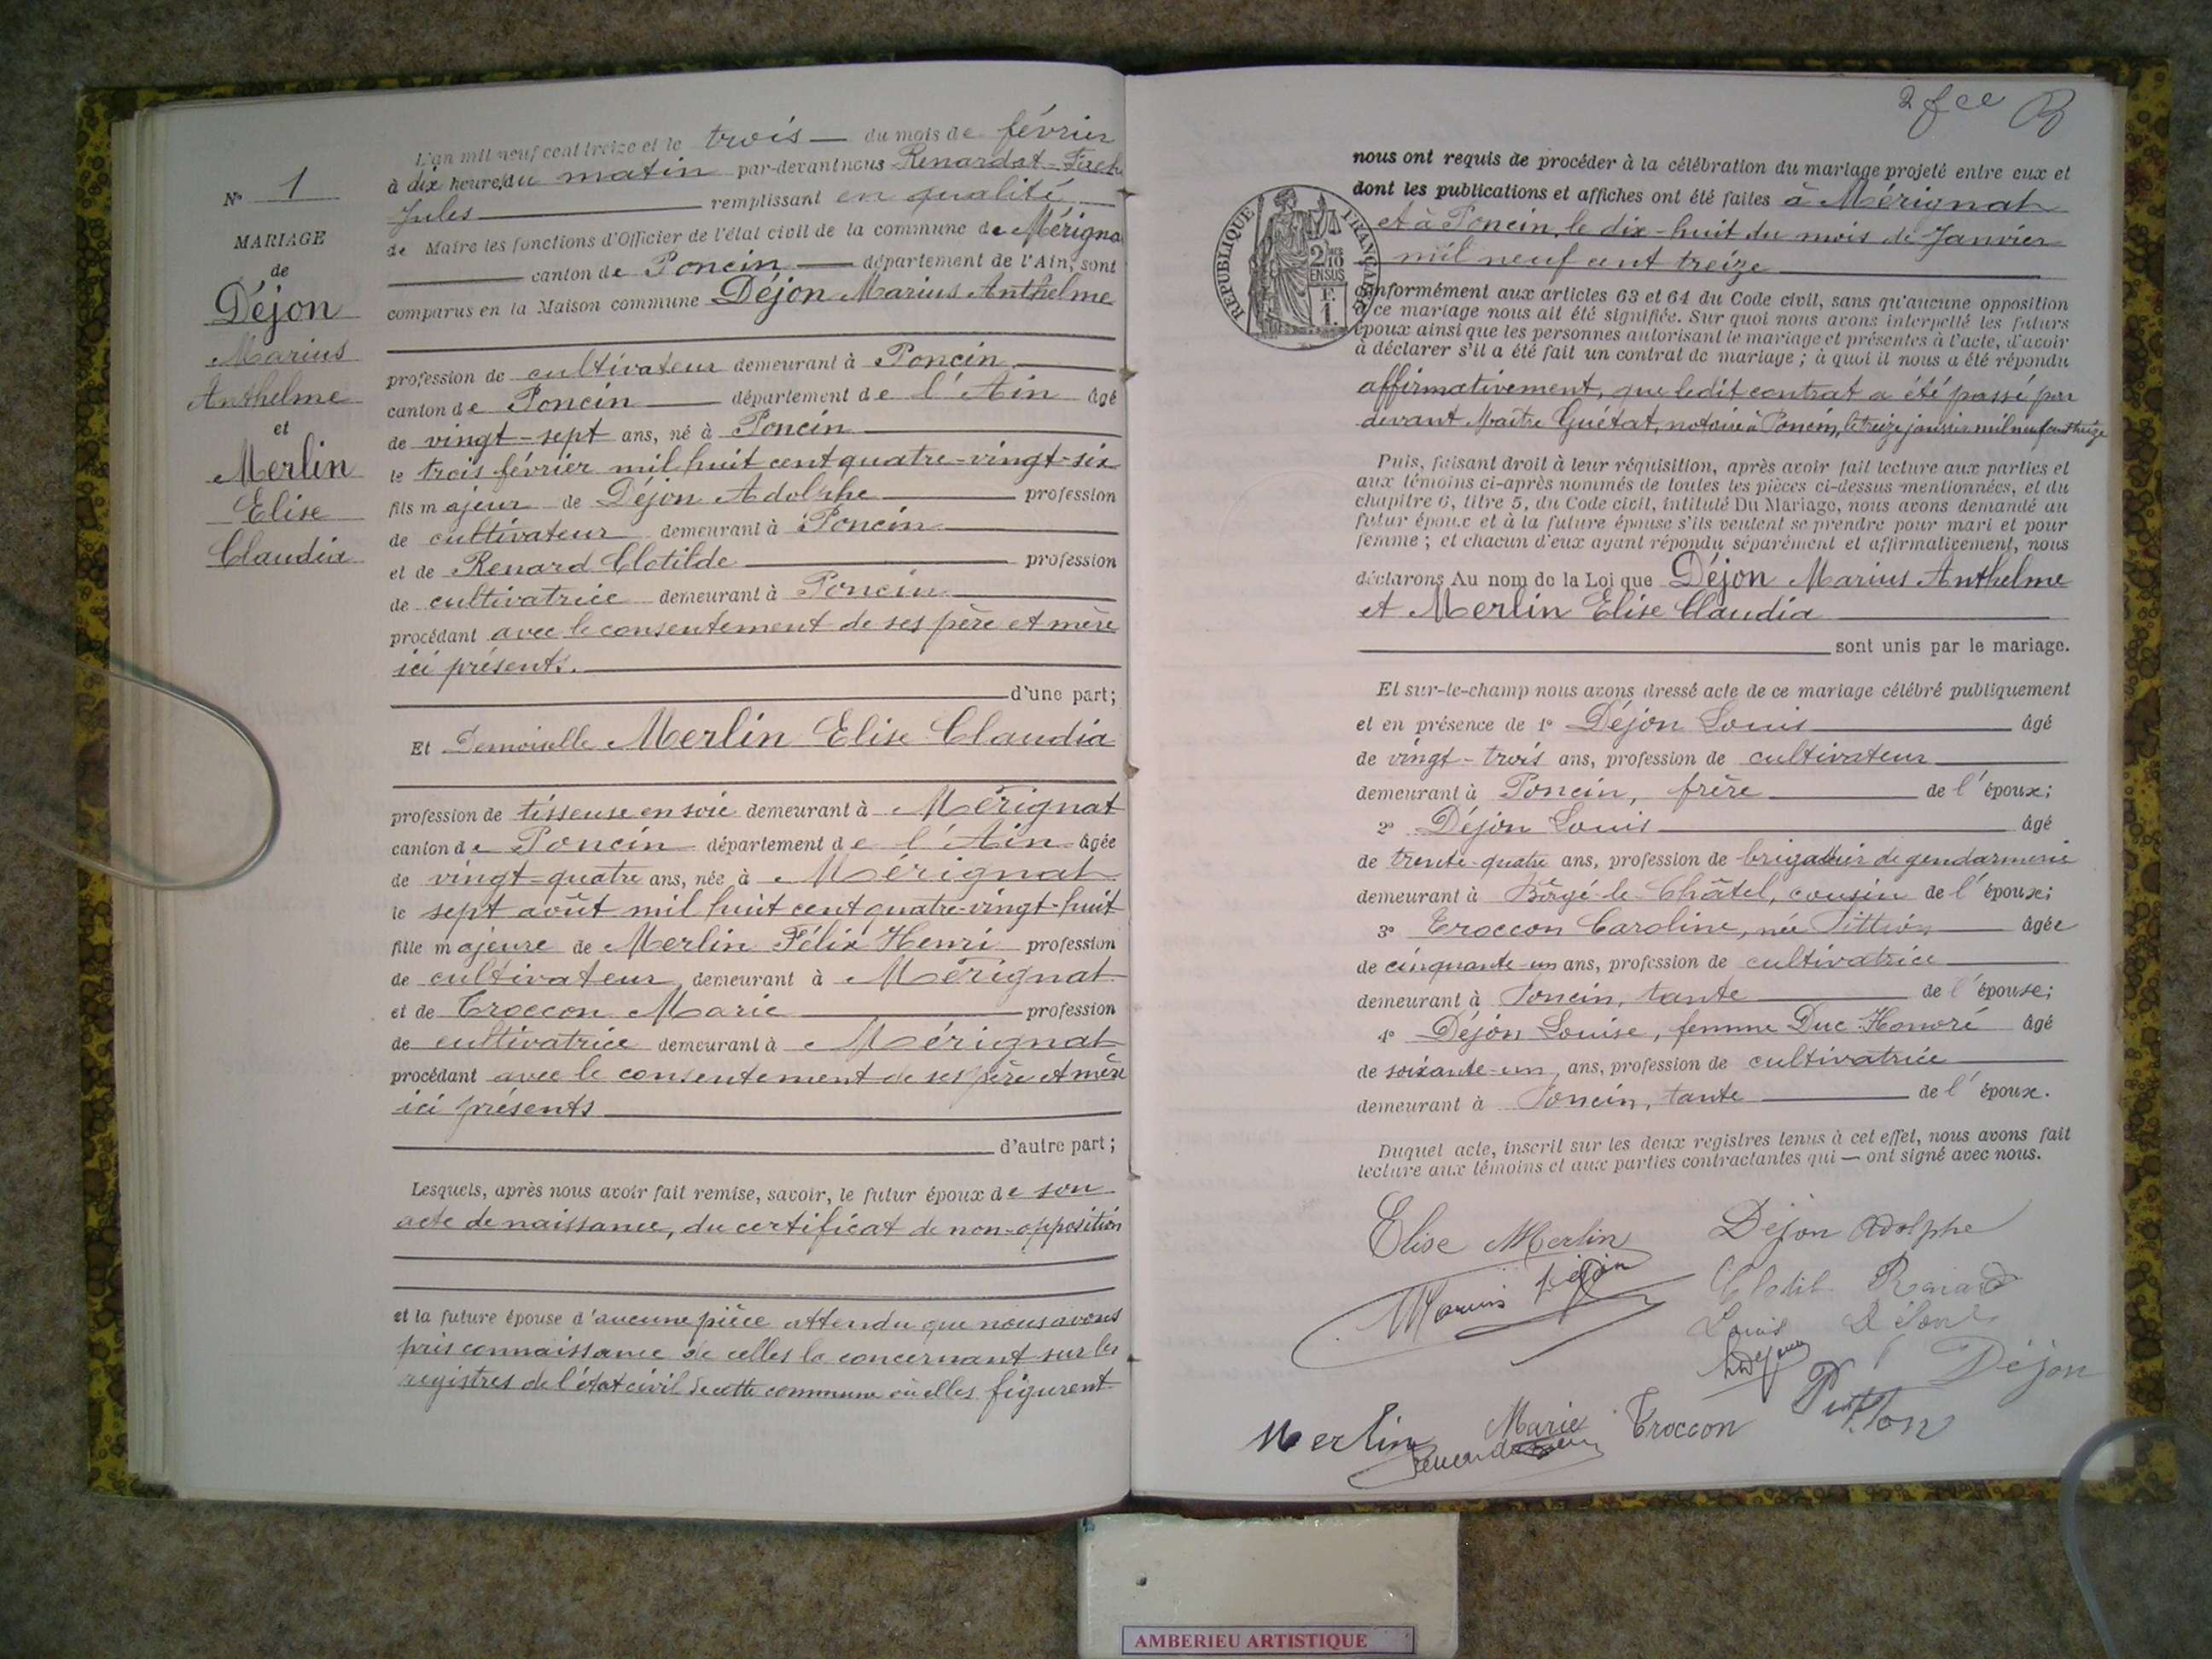 N° 1
MARIAGE
de
Déjon
Marius
Anthelme
et
Merlin
Elise
Claudia
L'an mil neuf cent treize et le trois — du mois de février
à dix heures du matin par-devant nous Renardat-
Jules remplissant en qualité
de Maire les fonctions d'Officier de l'état civil de la commune de Mérigna
canton de Poncin département de l'Ain, sont
comparus en la Maison commune Déjon Marius Anthelme
profession de cultivateur demeurant à Poncin
canton de Poncin département de l'Ain âgé
de vingt-sept ans, né à Poncin
le trois février mil huit cent quatre-vingt-six
fils majeur de Déjon Adolphe profession
de cultivateur demeurant à Poncin
et de Renard Clotilde profession
de cultivatrice demeurant à Poncin
procédant avec le consentement de ses père et mère
ici présents.
d'une part;
Et Demoiselle Merlin Elise Claudia
profession de tisseuse en soie demeurant à Mérignat
canton de Poncin département de l'Ain âgée
de vingt-quatre ans, née à Mérignat
le sept août mil huit cent quatre-vingt-huit
fille majeure de Merlin Félix Henri profession
de cultivateur demeurant à Mérignat
et de Troccon Marie profession
de cultivatrice demeurant à Mérignat
procédant avec le consentement de ses père et mère
ici présents
d'autre part;
Lesquels, après nous avoir fait remise, savoir, le futur époux de son
acte de naissance, du certificat de non-opposition
et la future épouse d'aucune pièce attendu que nous avons
pris connaissance de celles la concernant sur les
registres de l'état civil de cette commune où elles figurent
2
nous ont requis de procéder à la célébration du mariage projeté entre eux et
dont les publications et affiches ont été faites à Mérignat
et à Poncin, le dix-huit du mois de Janvier
mil neuf cent treize
REPUBLIQUE FRANÇAISE
2/10
EN SUS
F.
1.
conformément aux articles 63 et 64 du Code civil, sans qu'aucune opposition
à ce mariage nous ait été signifiée. Sur quoi nous avons interpellé les futurs
époux ainsi que les personnes autorisant le mariage et présentes à l'acte, d'avoir
à déclarer s'il a été fait un contrat de mariage ; à quoi il nous a été répondu
affirmativement, que ledit contrat a été passé par
devant Maître Guétat, notaire à Poncin, le treize janvier mil neuf cent treize
Puis, faisant droit à leur réquisition, après avoir fait lecture aux parties et
aux témoins ci-après nommés de toutes les pièces ci-dessus mentionnées, et du
chapitre 6, titre 5, du Code civil, intitulé Du Mariage, nous avons demandé au
futur époux et à la future épouse s'ils veulent se prendre pour mari et pour
femme ; et chacun d'eux ayant répondu séparément et affirmativement, nous
déclarons Au nom de la Loi que Déjon Marius Anthelme
et Merlin Elise Claudia
sont unis par le mariage.
Et sur-le-champ nous avons dressé acte de ce mariage célébré publiquement
et en présence de 1° Déjon Louis âgé
de vingt-trois ans, profession de cultivateur
demeurant à Poncin, frère de l'époux;
2° Déjon Louis âgé
de trente-quatre ans, profession de brigadier de gendarmerie
demeurant à Bâgé-le-Châtel, cousin de l'époux;
3° Troccon Caroline, née Pittion âgée
de cinquante-un ans, profession de cultivatrice
demeurant à Poncin, tante de l'épouse;
4° Déjon Louise, femme Duc Honoré âgé
de soixante-un ans, profession de cultivatrice
demeurant à Poncin, tante de l'époux.
Duquel acte, inscrit sur les deux registres tenus à cet effet, nous avons fait
lecture aux témoins et aux parties contractantes qui — ont signé avec nous.
Elise Merlin Déjon Adolphe
Marius Déjon Renard
Louis
Déjon
Merlin Marie Troccon
AMBERIEU ARTISTIQUE